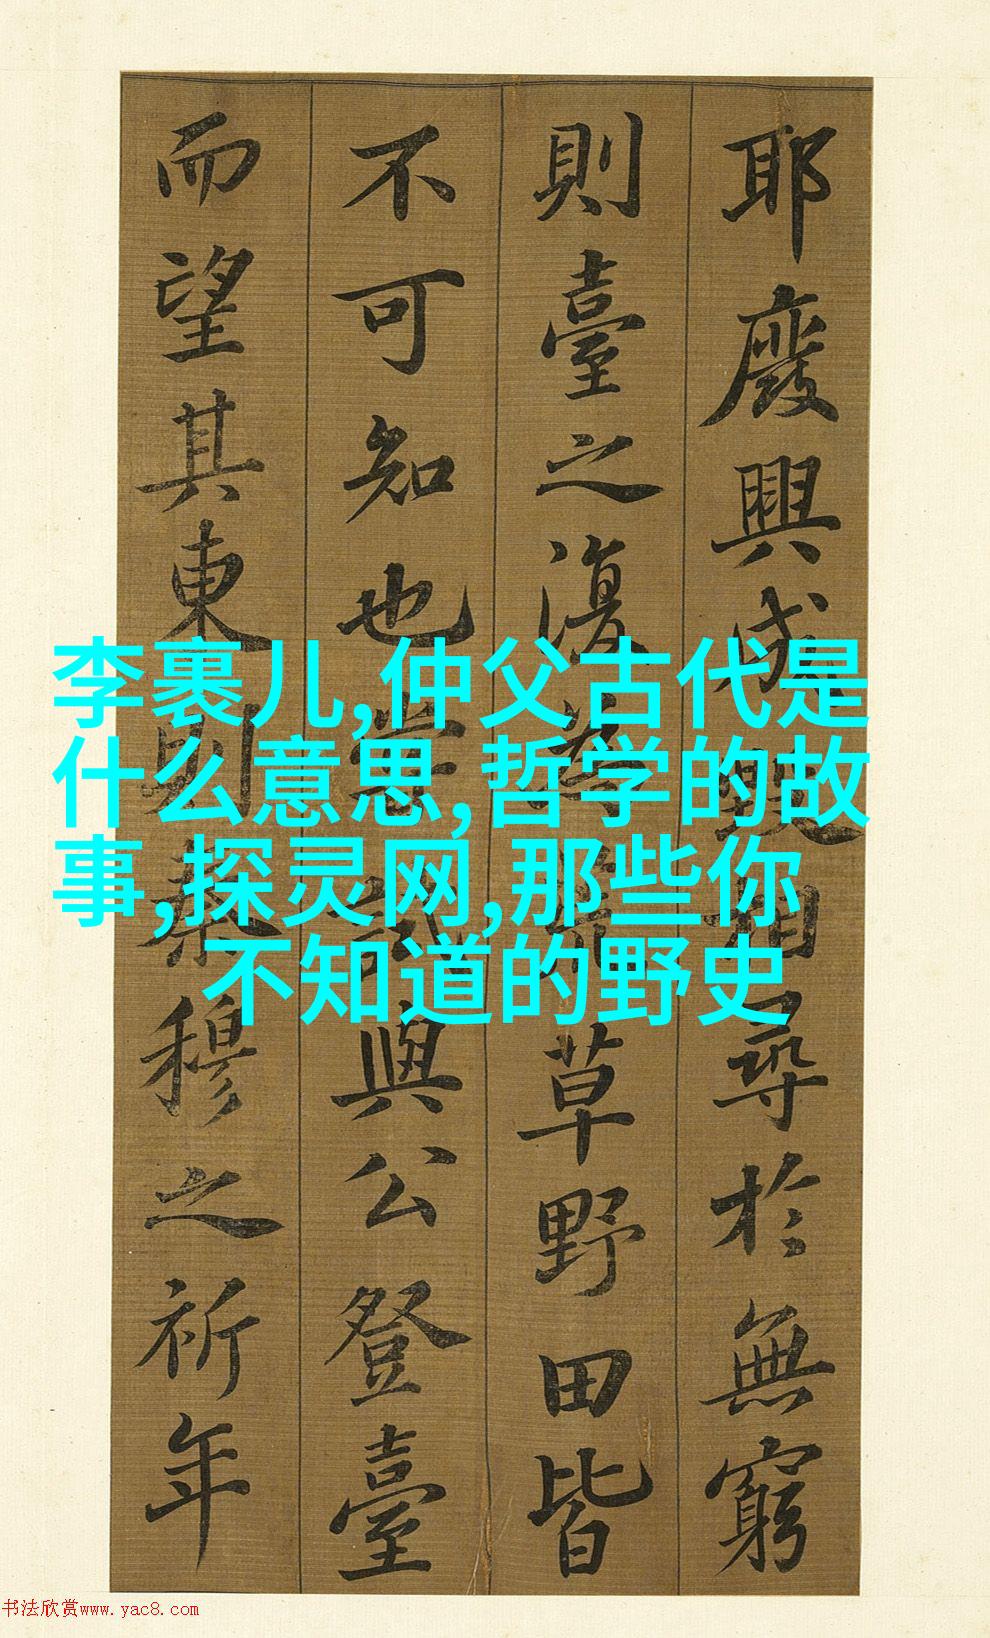 耶廢興成毀相尋於無窮
則臺之復為荒草野田皆
不可知也嘗試與公登臺
而望其東則秦穆之祈年
李裹儿,仲父古代是
什么意思,哲学的故
事,探灵网,那些你
不知道的野史
书法欣赏www.yac8.com